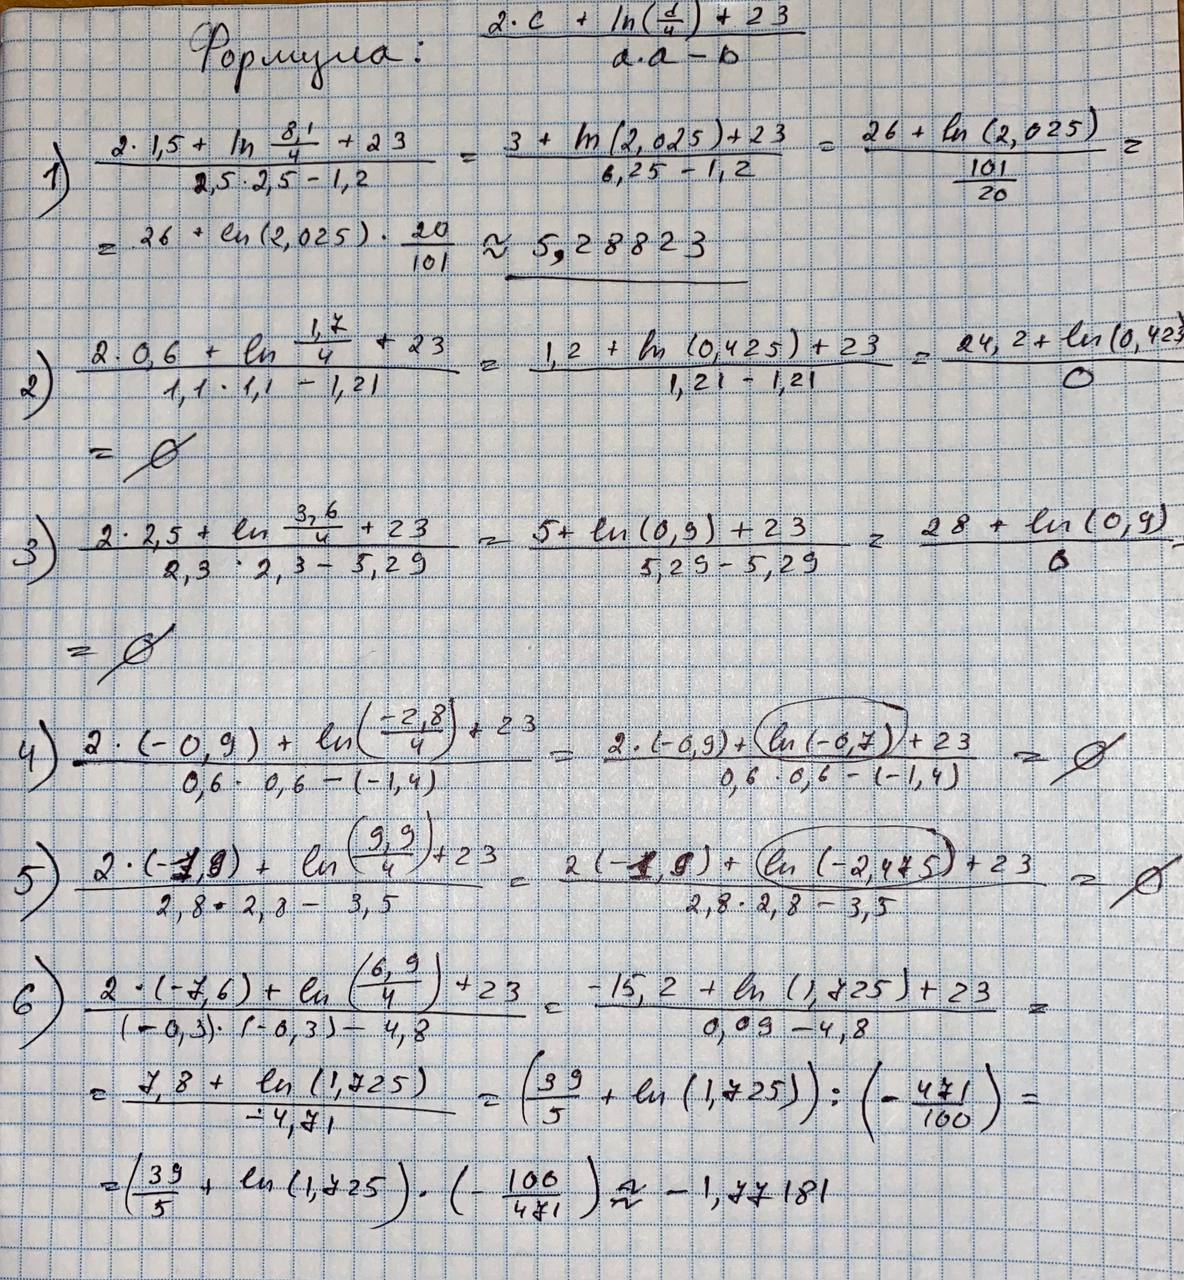 Формула: (2·c + ln(d/4) + 23)/(a·a − b)
1) (2·1,5 + ln 8,1/4 + 23)/(2,5·2,5 − 1,2) = (3 + ln(2,025) + 23)/(6,25 − 1,2) = (26 + ln(2,025))/(101/20) =
= 26 + ln(2,025) · 20/101 ≈ 5,28823
2) (2·0,6 + ln 1,7/4 + 23)/(1,1·1,1 − 1,21) = (1,2 + ln(0,425) + 23)/(1,21 − 1,21) = (24,2 + ln(0,425)/0
= ∅
3) (2·2,5 + ln 3,6/4 + 23)/(2,3·2,3 − 5,29) = (5 + ln(0,9) + 23)/(5,29 − 5,29) = (28 + ln(0,9))/0 =
= ∅
4) (2·(−0,9) + ln(−2,8/4) + 23)/(0,6·0,6 − (−1,4)) = (2·(−0,9) + ln(−0,7) + 23)/(0,6·0,6 − (−1,4)) = ∅
5) (2·(−1,9) + ln(9,9/4) + 23)/(2,8·2,8 − 3,5) = (2(−1,9) + ln(−2,475) + 23)/(2,8·2,8 − 3,5) = ∅
6) (2·(−7,6) + ln(6,9/4) + 23)/((−0,3)·(−0,3) − 4,8) = (−15,2 + ln(1,725) + 23)/(0,09 − 4,8) =
= (7,8 + ln(1,725))/(−4,71) = (39/5 + ln(1,725)) : (−471/100) =
= (39/5 + ln(1,725) · (−100/471) ≈ −1,77181